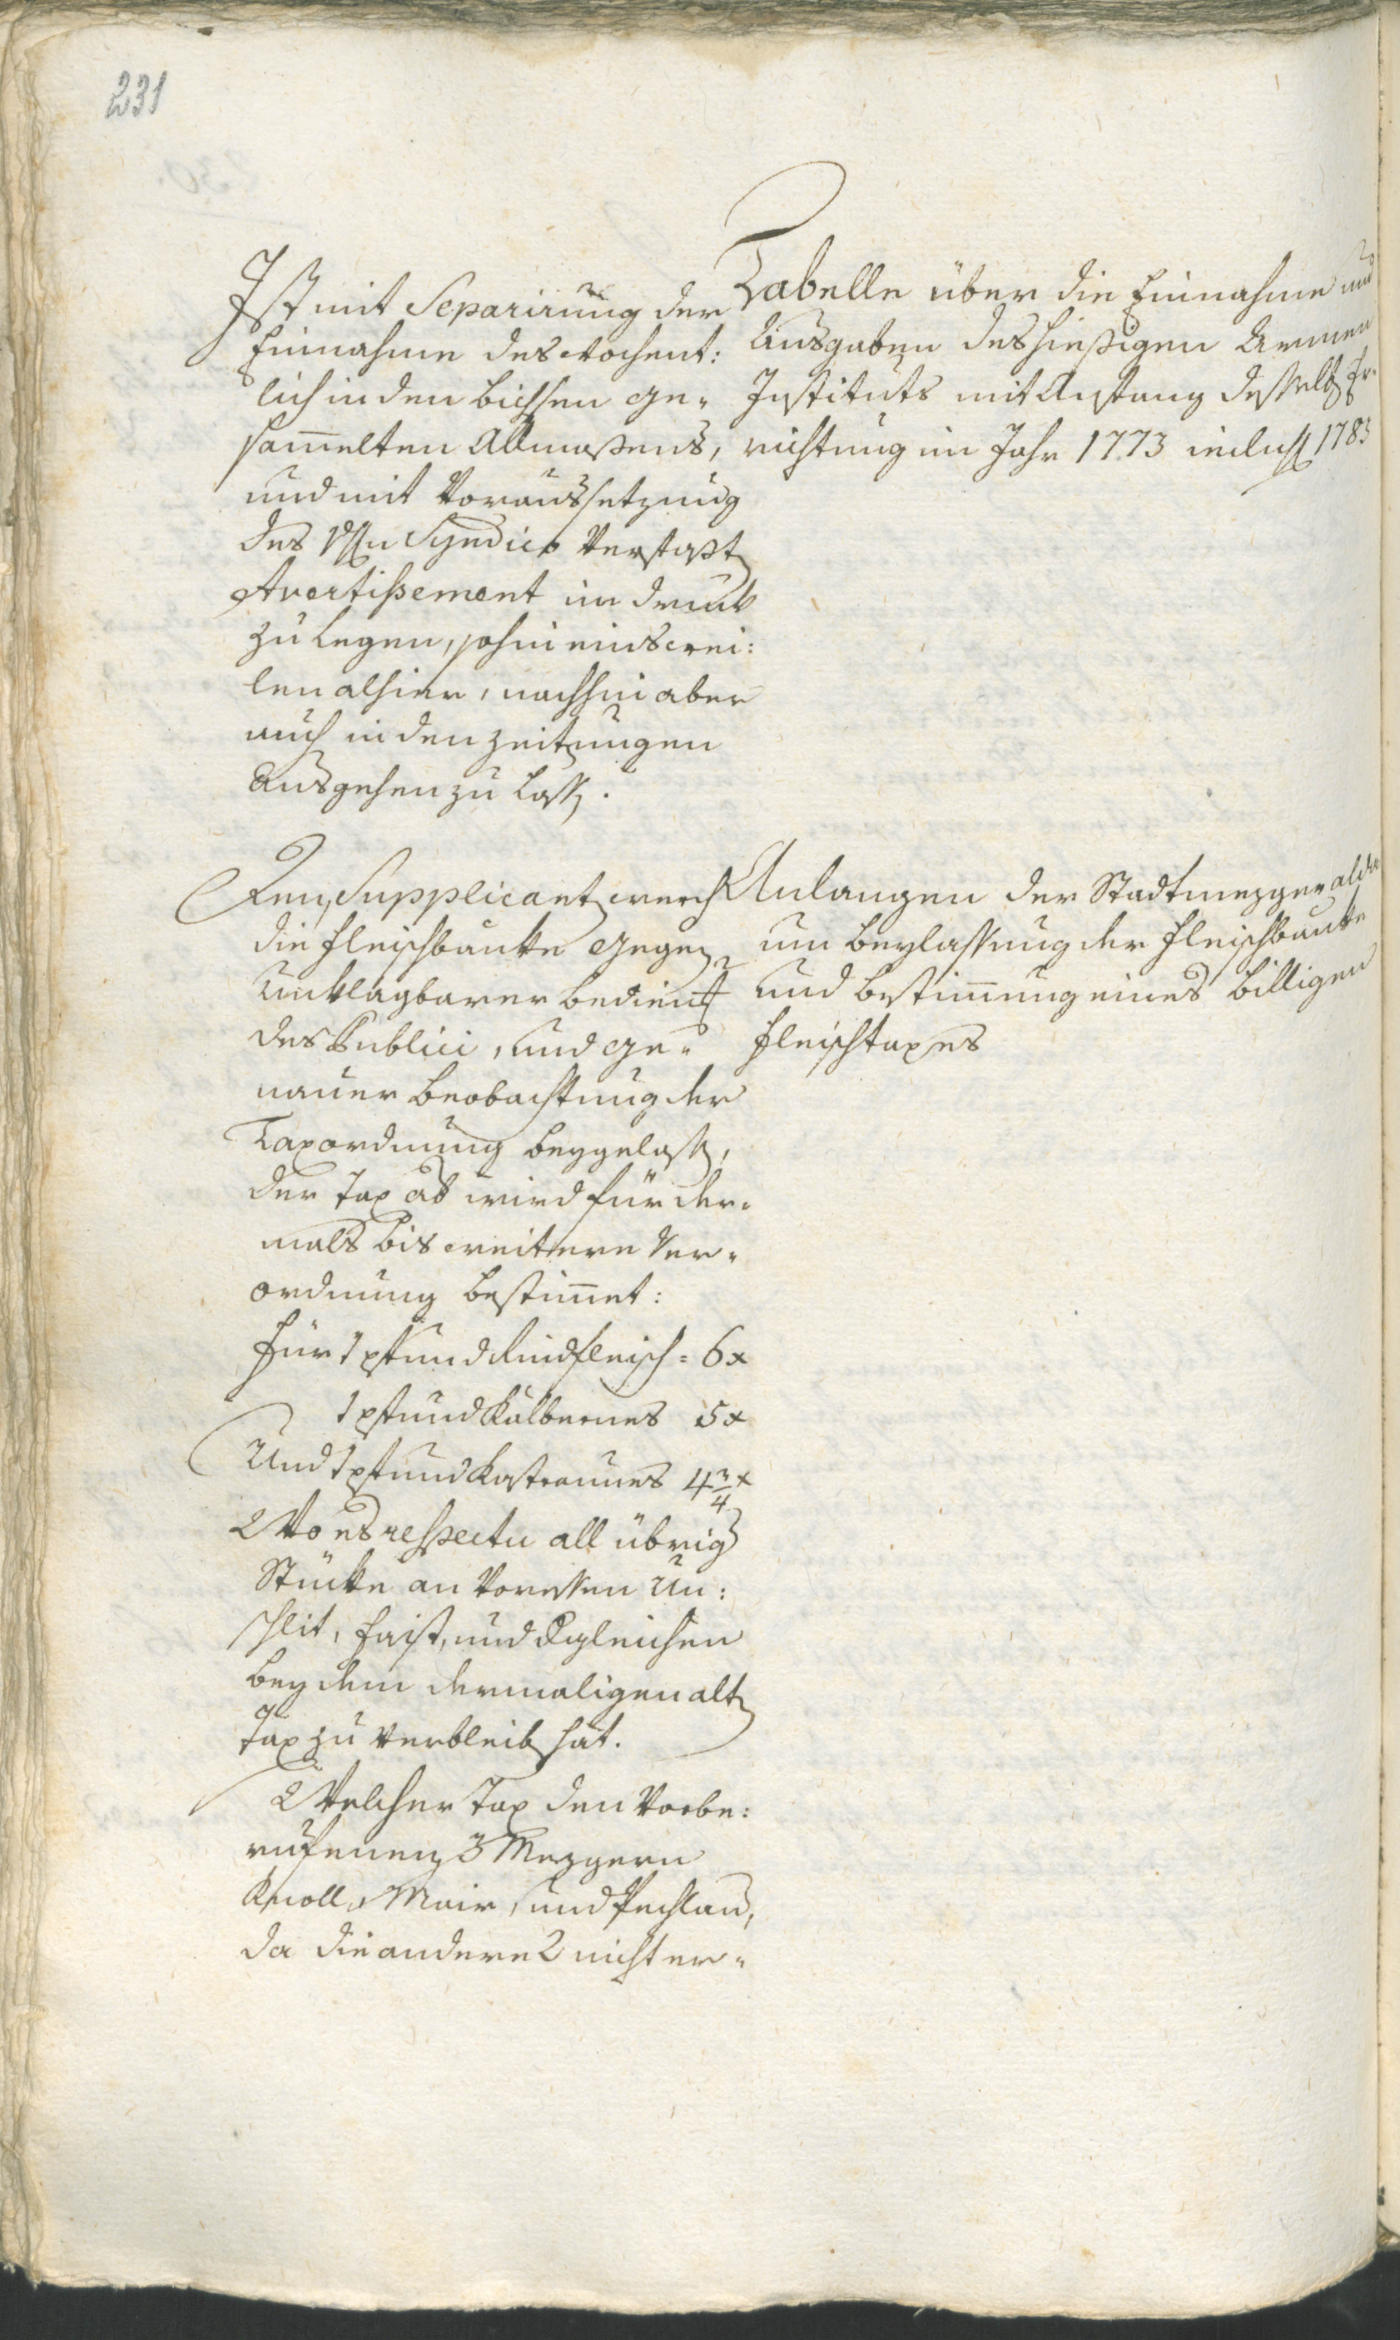 231
Ist mit Separirung der
Einnahme des wochent:
lich in den Bichsen ge-
sam̄elten Allmosens,
und mit Voraussetzung
des Syndico Verfaßt
Avertißement in Druck
zu legen, sohin einsweil:
len alhier, nachhin aber
auch in den Zeitungen
Ausgehen zu lass.
Tabelle über die Einnahme und
Ausgaben des hiesigen Armen
Instituts mit Anfang desselb Er-
richtung im Jahr 1773 inclus 1783
Den Supplicanten werd
die Fleischbanke gegen
Unklagbarer Bedienung
des Publici, und ge-
nauer Beobachtung der
Taxordnung beygelass,
der Tax ab wird für der-
mals bis weitere Ver-
ordnung bestim̄et:
Für 1 Pfund Rindfleisch = 6x
1 Pfund Kälbernes 5x
Und 1 Pfund Kastraunes 4 3/4 x
Wo es respectu all übrig
Stücke an Voressen Un:
schlit, Faist, und dergleichen
bey dem dermaligen alt
Tax zu verbleib hat.
Welcher Tax den Vorbe:
rufenen 3 Mezgern
Knoll, Mair, und Pechlau,
da die andere 2 nicht er-
Anlangen der Stadtmezger alda
um Beylassung der Fleischbanke
und Bestim̄ung eines billigen
Fleischtaxes